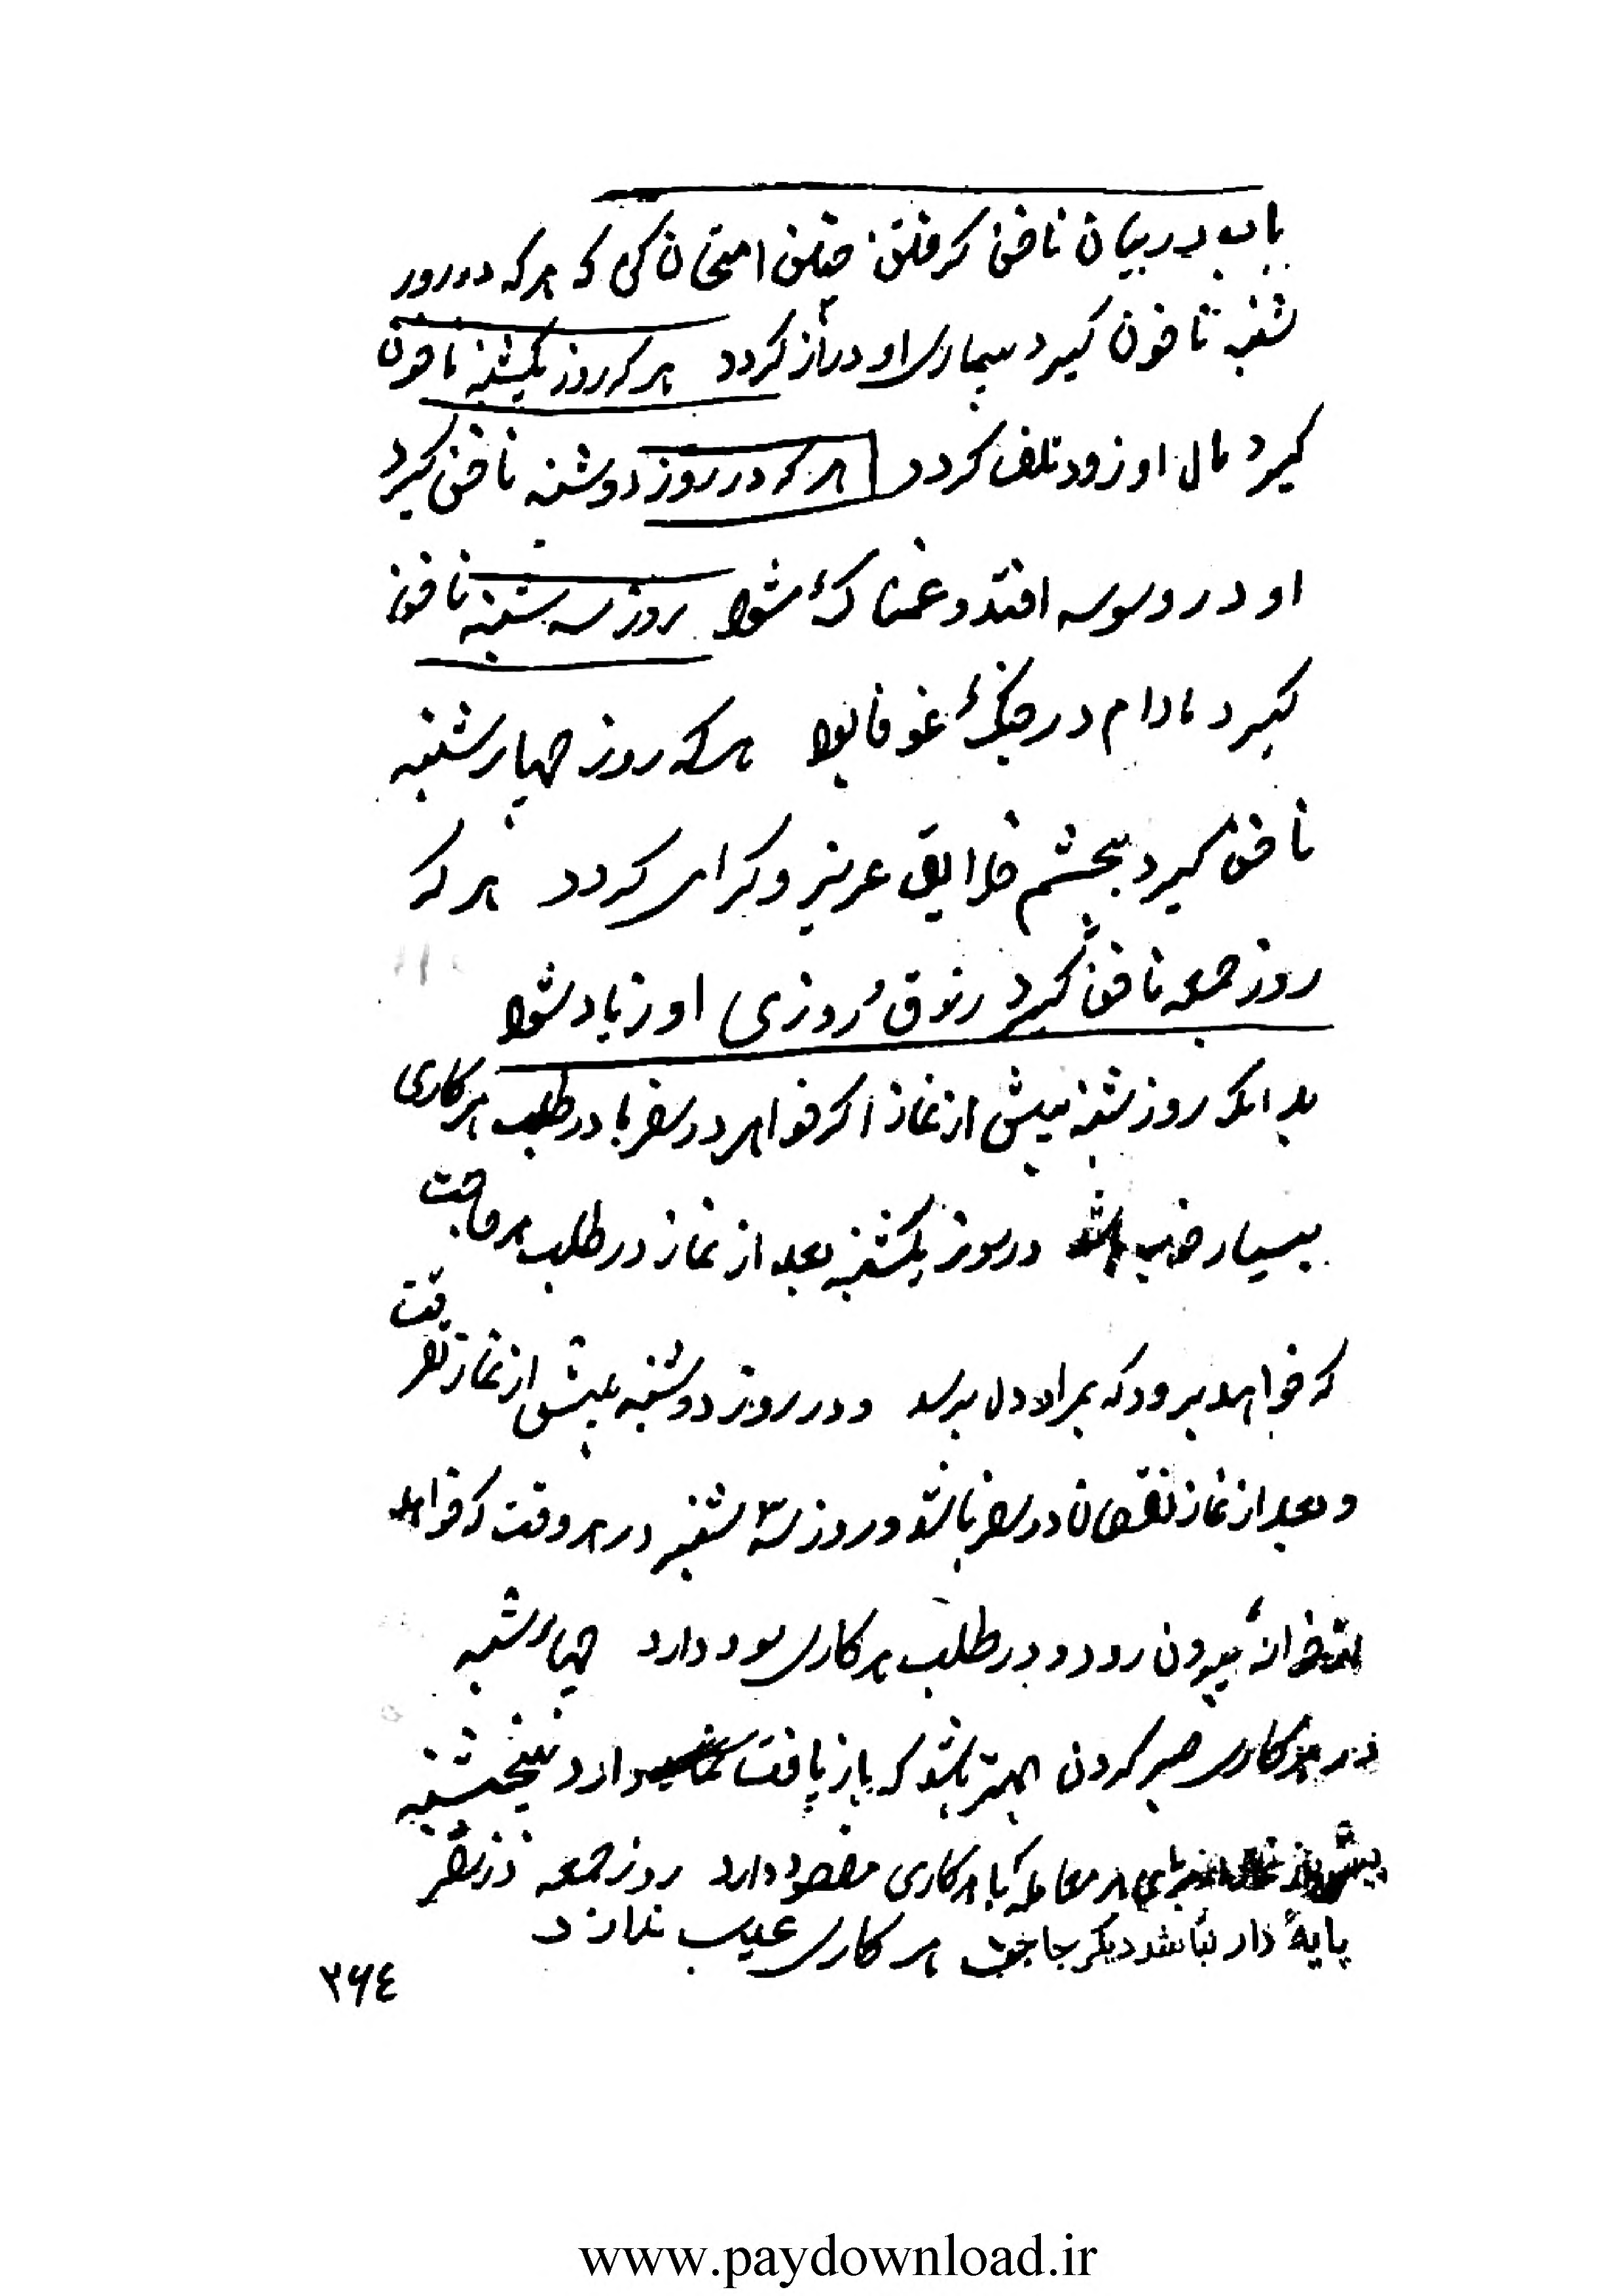 باب در بیان ناخن گرفتن چنین امتحان کی که هر که در روز
شنبه ناخون گیرد بیماری او دراز گردد هر که روز یکشنبه ناخون
گیرد مال او زود تلف گردد هر که در روز دوشنبه ناخن گیرد
او در وسوسه افتد و غمناک شود روز سه شنبه ناخن
گیرد مادام در جنگ غوغا بود هرکه روز چهارشنبه
ناخن گیرد بچشم خلایق عزیز و گرامی گردد هر که
روز جمعه ناخن گیرد رزق و روزی او زیاد شود
بدانکه روز شنبه پیش از نماز اگر خواهد در سفر یا در طلب هر کاری
بسیار خوب باشد در روز یکشنبه بعد از نماز در طلب هر حاجت
که خواهد برود که بمراد دل برسد و در روز دوشنبه پیش از نماز
و بعد از نماز نقصان در سفر باشد و روز سه شنبه در هر وقت که خواهد
بیرون رود و در طلب هر کاری سود دارد چهارشنبه
در هر کاری صبر کردن بهتر باشد که باز یافت دارد پنجشنبه
پیش از نماز هر معامله که با هر کاری مقصود دارد روز جمعه در سفر
پایه دار نباشد دیگر بحاجت هر کاری عیب ندارد
۳۶۴
www.paydownload.ir